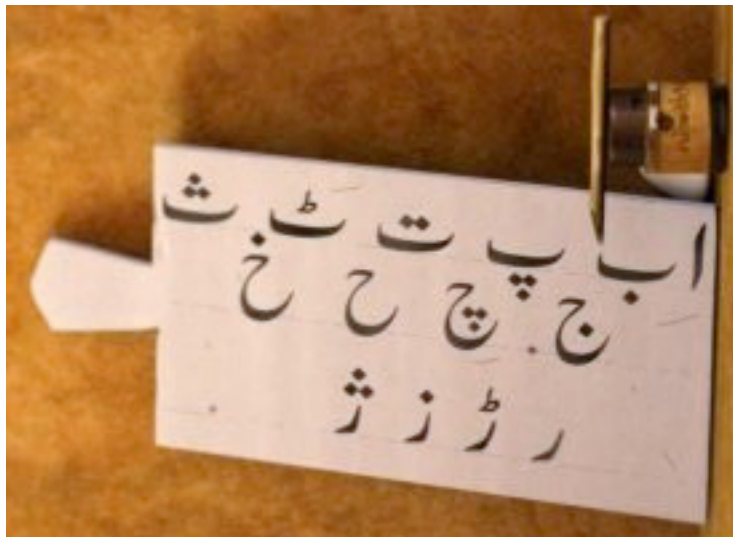 ا ب پ ت ٹ ث
ج چ ح خ
ر ڑ ز ژ